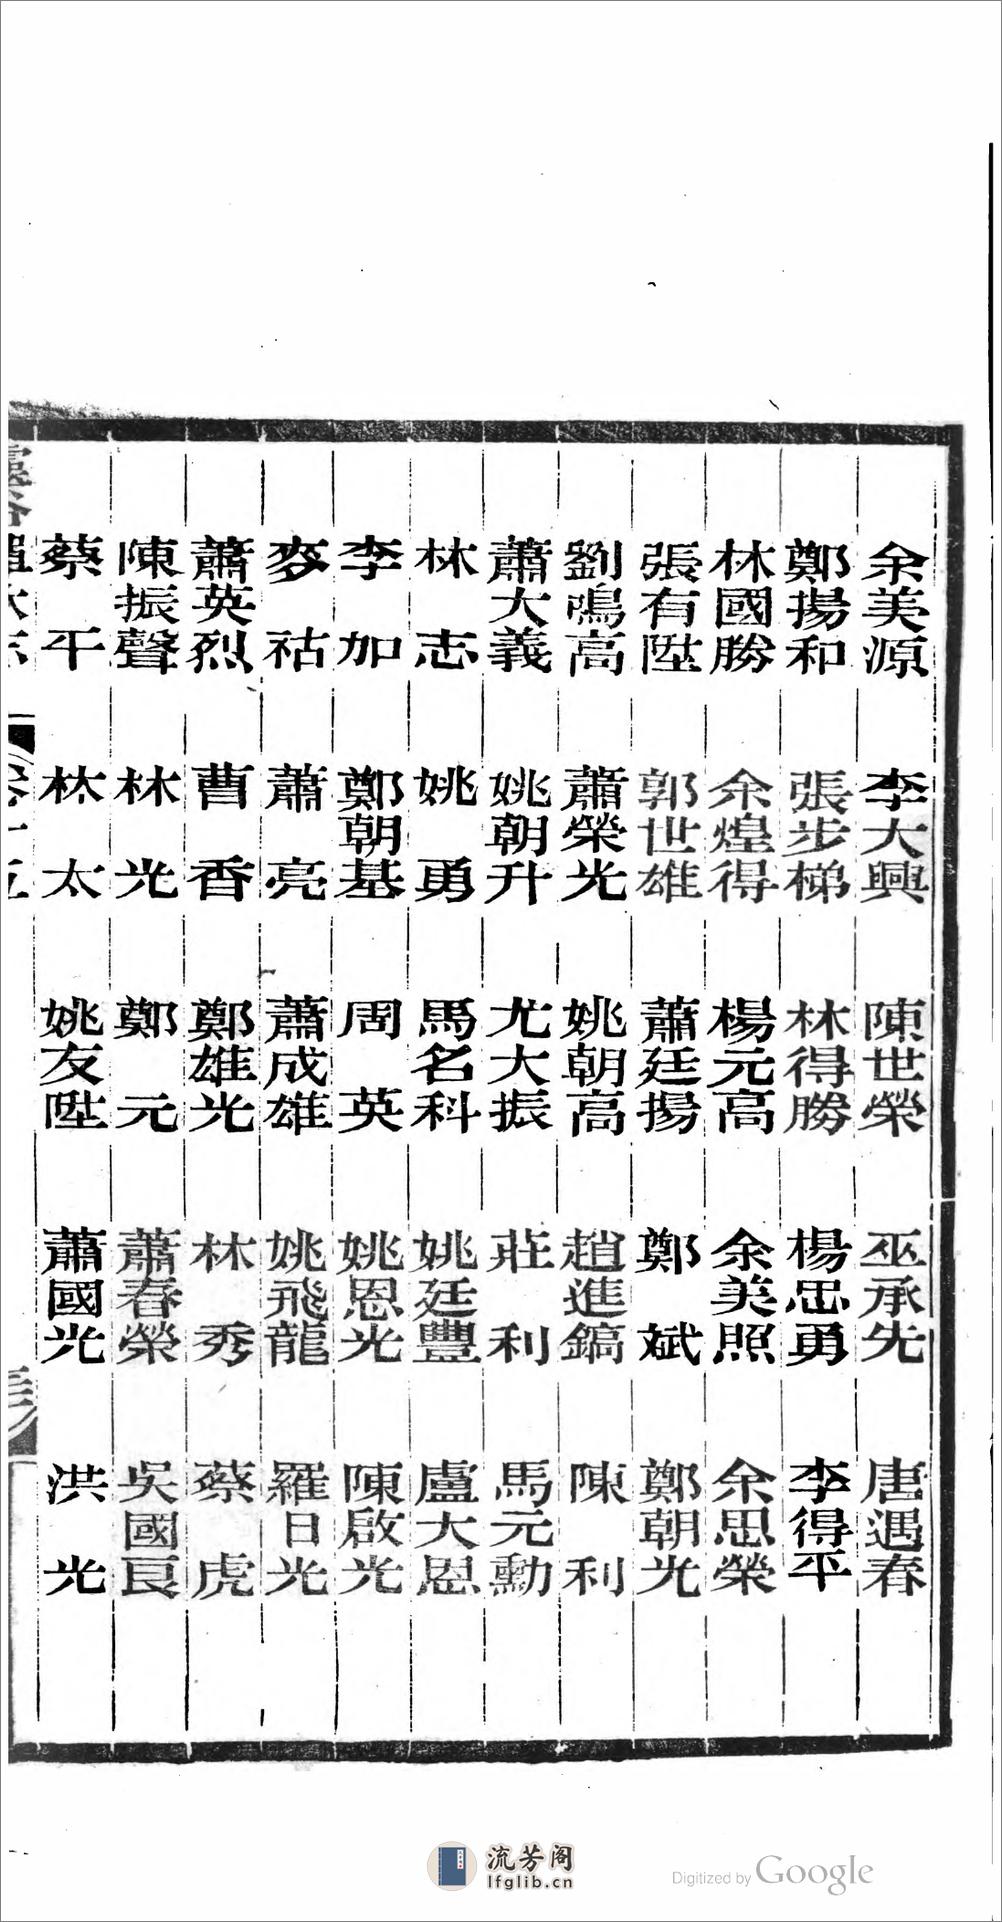 余美源　李大興　陳世榮　巫承先　唐遇春
鄭揚和　張步梯　林得勝　楊思勇　李得平
林國勝　余煌得　楊元高　余美照　余思榮
張有陞　郭世雄　蕭廷揚　鄭　斌　鄭朝光
劉鳴高　蕭榮光　姚朝高　趙進鎬　陳　利
蕭大義　姚朝升　尤大振　莊　利　馬元勳
林　志　姚　勇　馬名科　姚廷豐　盧大恩
李　加　鄭朝基　周　英　姚恩光　陳啟光
麥　祜　蕭　亮　蕭成雄　姚飛龍　羅日光
蕭英烈　曹　香　鄭雄光　林　秀　蔡　虎
陳振聲　林　光　鄭　元　蕭春榮　吳國良
蔡　平　林　太　姚友陞　蕭國光　洪　光
流芳阁
lfglib.cn
Digitized by Google